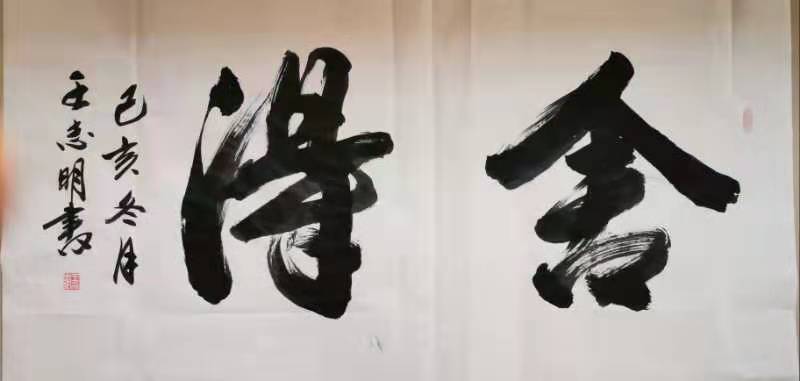 舍得
己亥冬月
王志明書